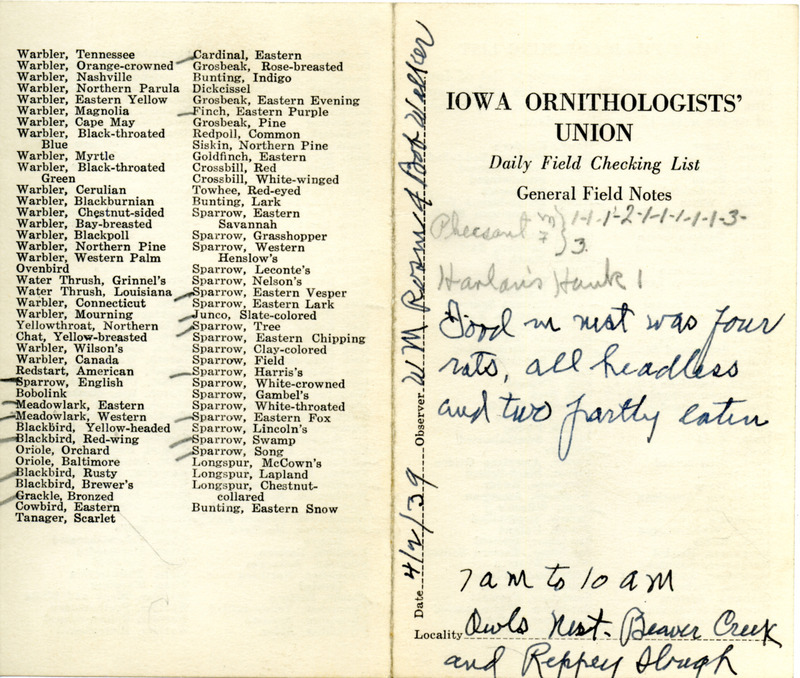 Warbler, Tennessee
Warbler, Orange-crowned
Warbler, Nashville
Warbler, Northern Parula
Warbler, Eastern Yellow
Warbler, Magnolia
Warbler, Cape May
Warbler, Black-throated
Blue
Warbler, Myrtle
Warbler, Black-throated
Green
Warbler, Cerulian
Warbler, Blackburnian
Warbler, Chestnut-sided
Warbler, Bay-breasted
Warbler, Blackpoll
Warbler, Northern Pine
Warbler, Western Palm
Ovenbird
Water Thrush, Grinnel's
Water Thrush, Louisiana
Warbler, Connecticut
Warbler, Mourning
Yellowthroat, Northern
Chat, Yellow-breasted
Warbler, Wilson's
Warbler, Canada
Redstart, American
Sparrow, English
Bobolink
Meadowlark, Eastern
Meadowlark, Western
Blackbird, Yellow-headed
Blackbird, Red-wing
Oriole, Orchard
Oriole, Baltimore
Blackbird, Rusty
Blackbird, Brewer's
Grackle, Bronzed
Cowbird, Eastern
Tanager, Scarlet
Cardinal, Eastern
Grosbeak, Rose-breasted
Bunting, Indigo
Dickcissel
Grosbeak, Eastern Evening
Finch, Eastern Purple
Grosbeak, Pine
Redpoll, Common
Siskin, Northern Pine
Goldfinch, Eastern
Crossbill, Red
Crossbill, White-winged
Towhee, Red-eyed
Bunting, Lark
Sparrow, Eastern
Savannah
Sparrow, Grasshopper
Sparrow, Western
Henslow's
Sparrow, Leconte's
Sparrow, Nelson's
Sparrow, Eastern Vesper
Sparrow, Eastern Lark
Junco, Slate-colored
Sparrow, Tree
Sparrow, Eastern Chipping
Sparrow, Clay-colored
Sparrow, Field
Sparrow, Harris's
Sparrow, White-crowned
Sparrow, Gambel's
Sparrow, White-throated
Sparrow, Eastern Fox
Sparrow, Lincoln's
Sparrow, Swamp
Sparrow, Song
Longspur, McCown's
Longspur, Lapland
Longspur, Chestnut-
collared
Bunting, Eastern Snow
Date 4/2/39 Observer W M Rosene & Bob Walker
IOWA ORNITHOLOGISTS'
UNION
Daily Field Checking List
General Field Notes
Pheasant m } 1-1-1-2-1-1-1-1-3-
7 } 3
Harlan's Hawk 1
Food in nest was four
rats, all headless
and two partly eaten
7 am to 10 am
Locality Owls Nest. Beaver Creek
and Reppey Slough